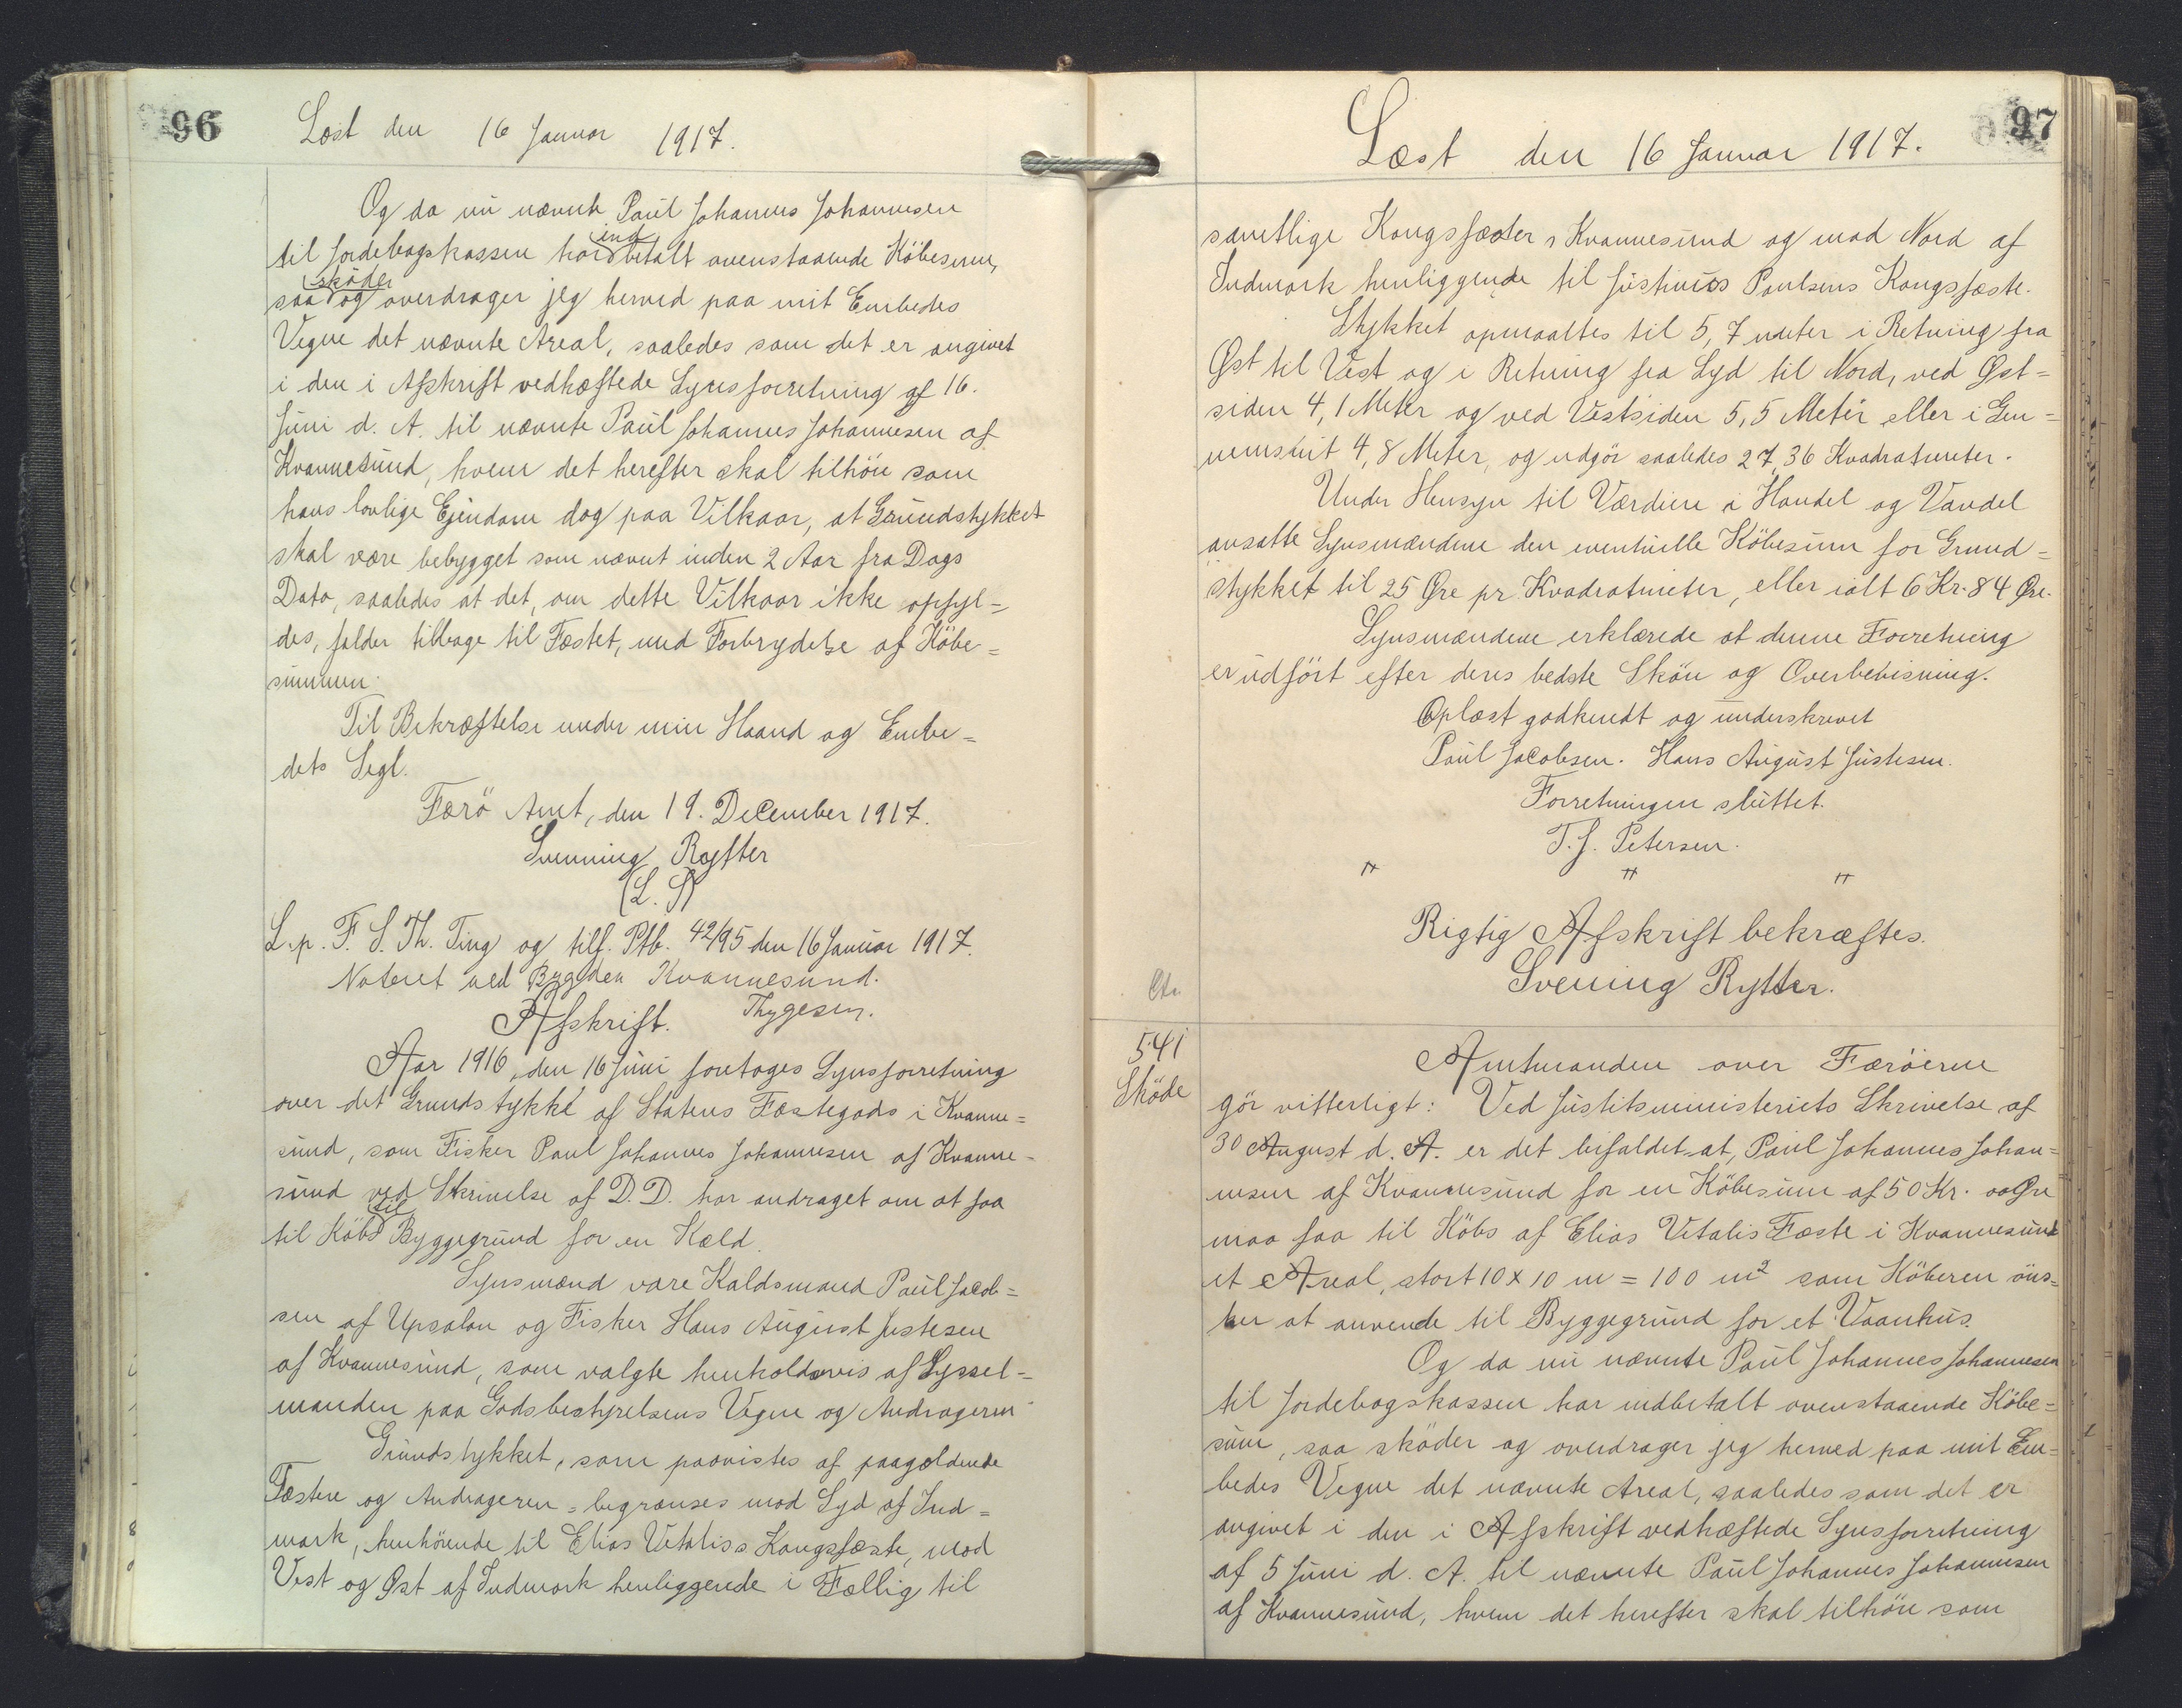 96
Læst den 16 Januar 1917.
Og da nu nævnte Paul Johannes Johannesen
til Jordebogskassen har indbetalt ovenstaaende Köbesum,
saa skøder og overdrager jeg herved paa mit Embedes
Vegne det nævnte Areal, saaledes som det er angivet
i den i Afskrift vedhæftede Synsforretning af 16.
Juni d. A. til nævnte Paul Johannes Johannesen af
Kvannesund, hvem det herefter skal tilhöre som
hans lovlige Ejendom dog paa Vilkaar, at Grundstykket
skal være bebygget som nævnt inden 2 Aar fra Dags
Dato, saaledes at det, om dette Vilkaar ikke opfyl=
des, falder tilbage til Fæstet, med Forbrydelse af Köbe=
summen.
Til Bekræftelse under min Haand og Embe=
dets Segl.
Færö Amt, den 19. December 1917.
Svenning Rytter
(L. S)
L. p. F. S. Th. Ting og tilf. Ptb. 42/95 den 16 Januar 1917.
Noteret ved Bygden Kvannesund.
Thygesen.
Afskrift.
Aar 1916, den 16 Juni foretages Synsforretning
over det Grundstykke af Statens Fæstegods i Kvanne=
sund, som Fisker Paul Johannes Johannesen af Kvanne=
sund ved Skrivelse af D. D. har andraget om at faa
til Köbs til Byggegrund for en Kæld.
Synsmænd vare Kaldsmand Paul Jacob=
sen af Upsalon og Fisker Hans August Justesen
af Kvannesund, som valgte henholdsvis af Syssel=
manden paa Godsbestyrelsens Vegne og Andrageren
Grundstykket, som paavistes af paagældende
Fæstere og Andrageren = begrænses mod Syd af Ind=
mark, henhörende til Elias Vitaliss Kongsfæste, mod
Vest og Øst af Indmark henliggende i Fællig til
97
Læst den 16 Januar 1917.
samtlige Kongsfæster i Kvannesund og mod Nord af
Indmark henliggende til Justinus Poulsens Kongsfæste.
Stykket opmaaltes til 5,7 meter i Retning fra
Øst til Vest og i Retning fra Syd til Nord, ved Øst=
siden 4,1 Meter og ved Vestsiden 5,5 Meter eller i Gen=
nemsnit 4,8 Meter, og udgör saaledes 27,36 Kvadratmeter.
Under Hensyn til Værdien i Handel og Vandel
ansatte Synsmændene den eventuelle Köbesum for Grund=
stykket til 25 Øre pr. Kvadratmeter, eller ialt 6 Kr. 84 Øre.
Synsmændene erklærede at denne Forretning
er udført efter deres bedste Skön og Overbevisning.
Oplæst godkendt og underskrevet
Paul Jacobsen. Hans August Justesen.
Forretningen sluttet.
T. J. Petersen.
" " "
Rigtig Afskrift bekræftes.
Svenning Rytter.
541
Sköde
Amtmanden over Færöerne
gör vitterligt: Ved Justitsministeriets Skrivelse af
30 August d. A. er det bifaldet, at, Paul Johannes Johan=
nesen af Kvannesund for en Köbesum af 50 Kr. 00 Øre
maa faa til Köbs af Elias Vitalis Fæste i Kvannesund
et Areal, stort 10 x 10 m = 100 m² som Köberen öns=
ker at anvende til Byggegrund for et Vaanhus.
Og da nu nævnte Paul Johannes Johannesen
til Jordebogskassen har indbetalt ovenstaaende Köbe=
sum, saa sköder og overdrager jeg herved paa mit Em=
bedes Vegne det nævnte Areal, saaledes som det er
angivet i den i Afskrift vedhæftede Synsforretning
af 5 Juni d. A. til nævnte Paul Johannes Johannesen
af Kvannesund, hvem det herefter skal tilhöre som